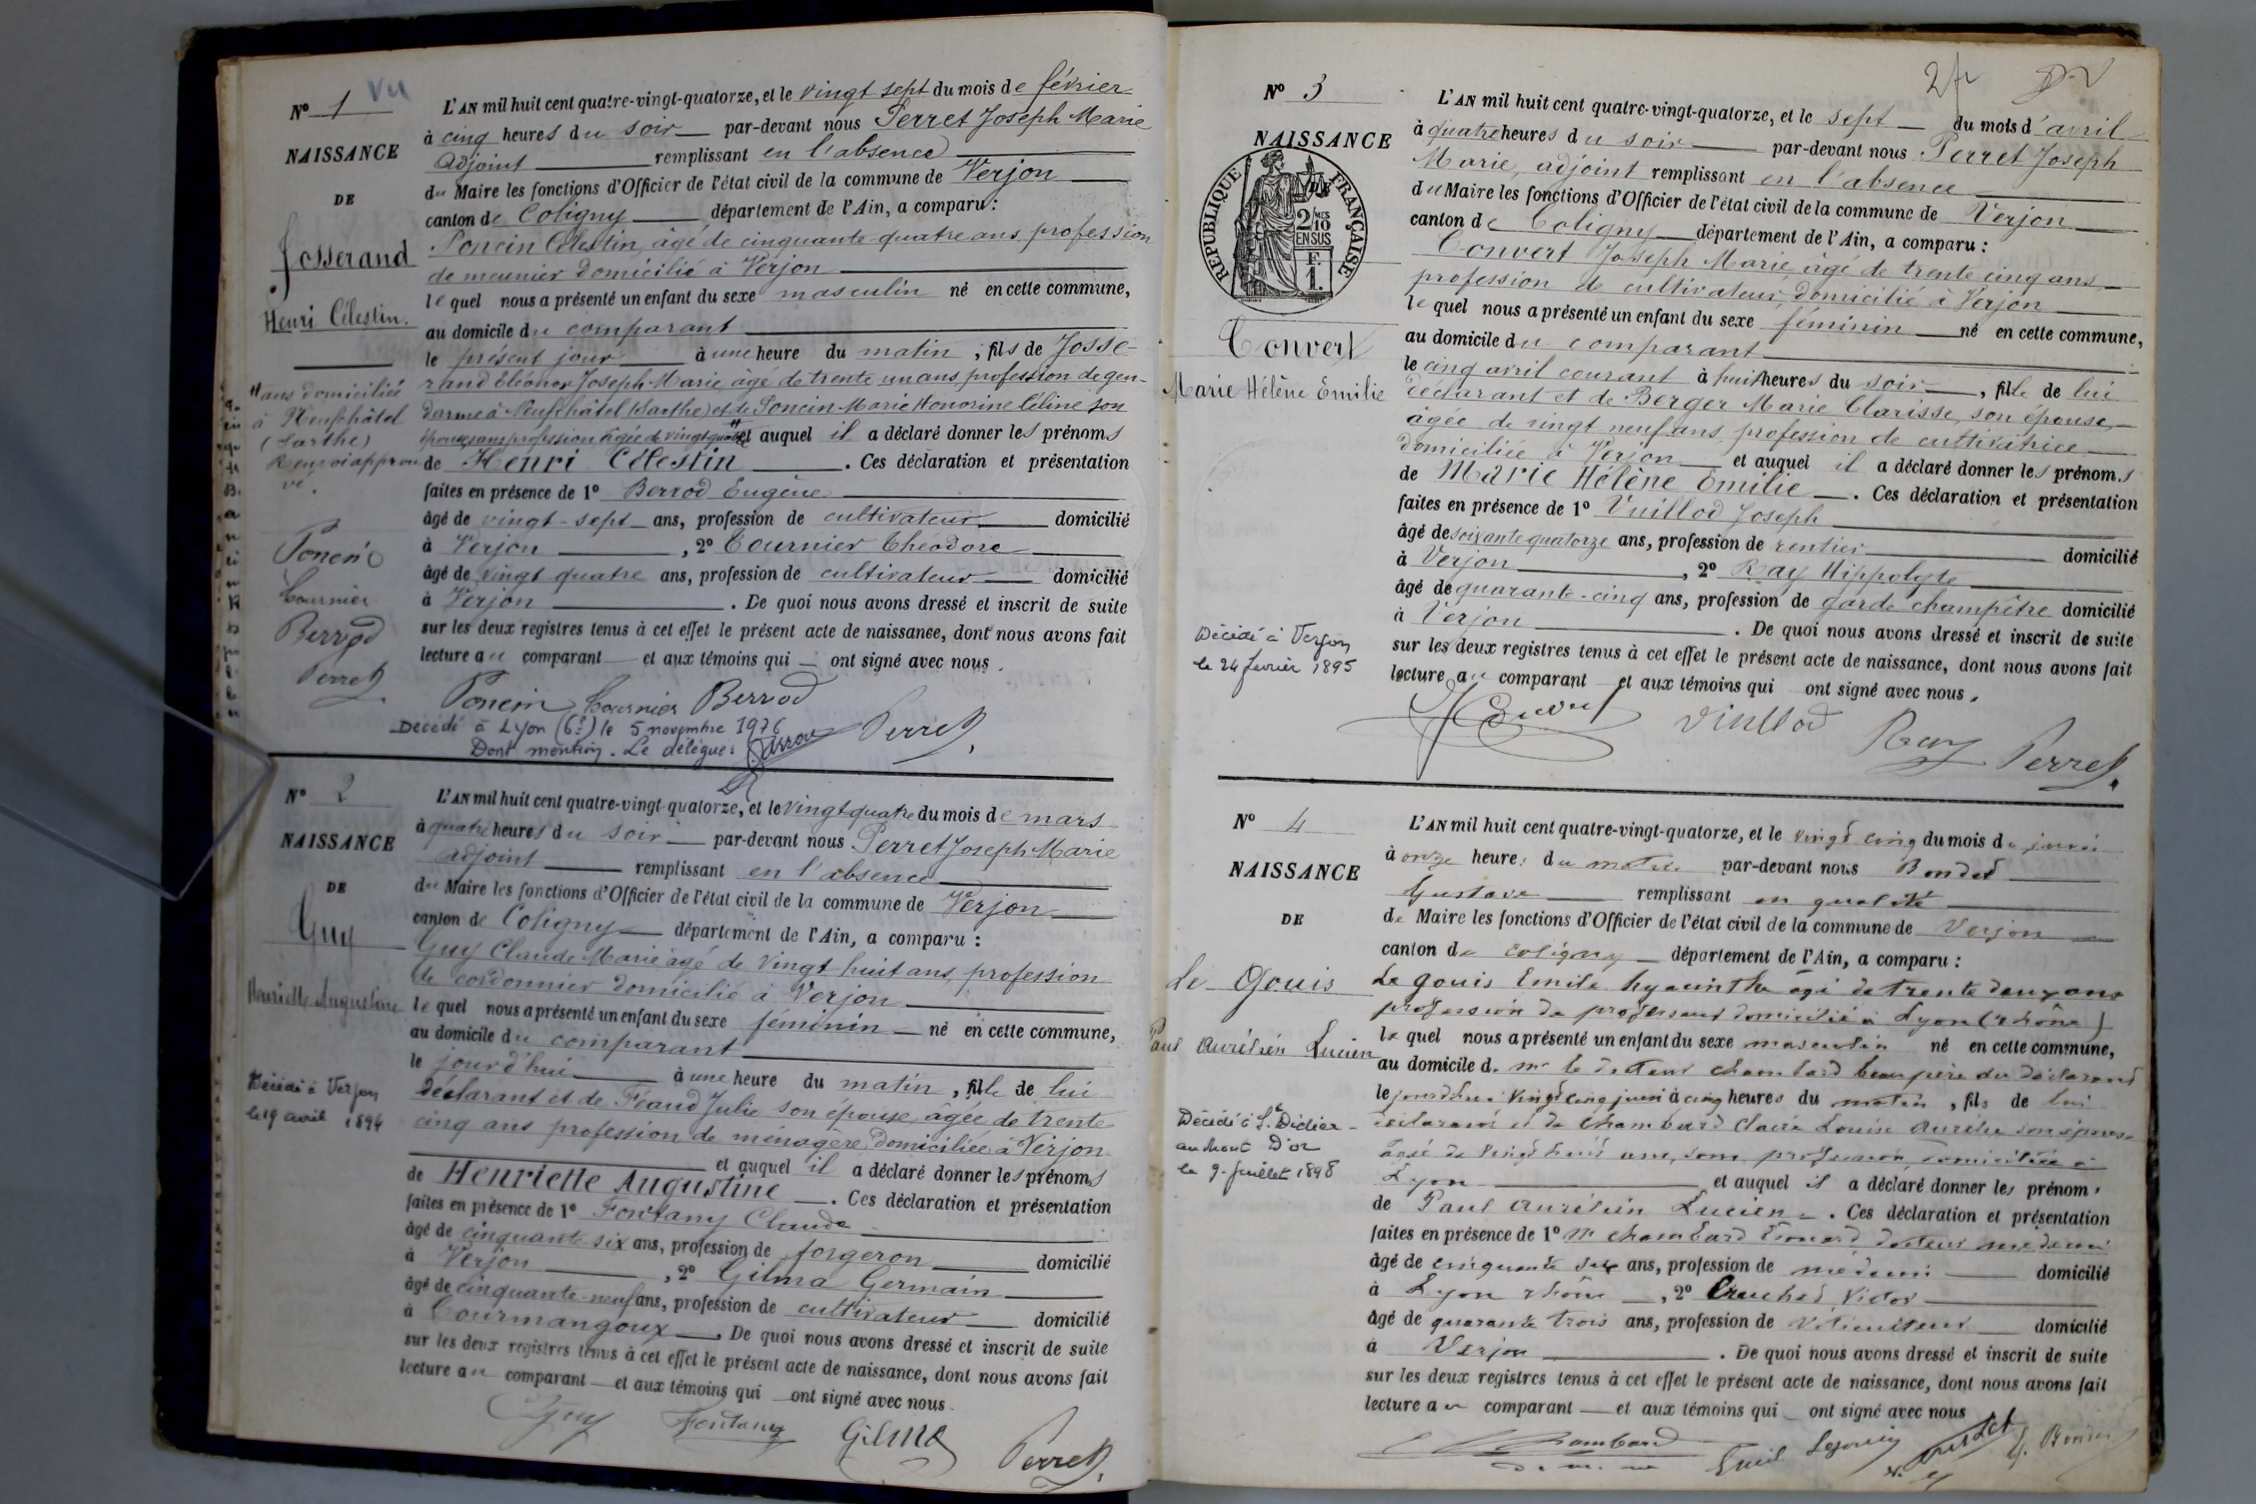 N° 1 Vu
NAISSANCE
DE
Josserand
Henri Célestin.
"ans domiciliée
à Neufchâtel
(Sarthe)
Renvoi approu
vé.
Poncin
Tournier
Berrod
Perret
L'AN mil huit cent quatre-vingt-quatorze, et le vingt sept du mois de février
à cinq heures du soir par-devant nous Perret Joseph Marie
adjoint remplissant en l'absence
du Maire les fonctions d'Officier de l'état civil de la commune de Verjon
canton de Coligny département de l'Ain, a comparu :
Poncin Célestin, âgé de cinquante-quatre ans, profession
de meunier domicilié à Verjon
lequel nous a présenté un enfant du sexe masculin né en cette commune,
au domicile du comparant
le présent jour à une heure du matin, fils de Josse-
rand Eléonor Joseph Marie âgé de trente un ans profession de gen-
darme à Neufchâtel (Sarthe) et de Poncin Marie Honorine Céline son
épouse sans profession âgée de vingt quatre" et auquel il a déclaré donner les prénoms
de Henri Célestin. Ces déclaration et présentation
faites en présence de 1° Berrod Eugène
âgé de vingt-sept ans, profession de cultivateur domicilié
à Verjon, 2° Tournier Théodore
âgé de vingt quatre ans, profession de cultivateur domicilié
à Verjon. De quoi nous avons dressé et inscrit de suite
sur les deux registres tenus à cet effet le présent acte de naissance, dont nous avons fait
lecture au comparant et aux témoins qui ont signé avec nous.
Poncin Tournier Berrod
Perret
Décédé à Lyon (6e) le 5 novembre 1976
Dont mention. Le délégué:
N° 2
NAISSANCE
DE
Guy
Henriette Augustine
Décédé à Verjon
le 19 avril 1894
L'AN mil huit cent quatre-vingt-quatorze, et le vingt quatre du mois de mars
à quatre heures du soir par-devant nous Perret Joseph Marie
adjoint remplissant en l'absence
du Maire les fonctions d'Officier de l'état civil de la commune de Verjon
canton de Coligny département de l'Ain, a comparu :
Guy Claude Marie âgé de vingt huit ans, profession
de cordonnier domicilié à Verjon
lequel nous a présenté un enfant du sexe féminin né en cette commune,
au domicile du comparant
le jourd'hui à une heure du matin, fille de lui
déclarant et de Féaud Julie son épouse, âgée de trente
cinq ans profession de ménagère, domiciliée à Verjon
et auquel il a déclaré donner les prénoms
de Henriette Augustine. Ces déclaration et présentation
faites en présence de 1° Fontany Claude
âgé de cinquante six ans, profession de forgeron domicilié
à Verjon, 2° Gilma Germain
âgé de cinquante-neuf ans, profession de cultivateur domicilié
à Courmangoux. De quoi nous avons dressé et inscrit de suite
sur les deux registres tenus à cet effet le présent acte de naissance, dont nous avons fait
lecture au comparant et aux témoins qui ont signé avec nous.
Guy Fontany Gilma Perret
2f
N° 3
NAISSANCE
DE
RÉPUBLIQUE FRANÇAISE
2/10MES
EN SUS
F.
1.
Convert
Marie Hélène Emilie
Décédé à Verjon
le 24 Janvier 1895
L'AN mil huit cent quatre-vingt-quatorze, et le sept du mois d'avril
à quatre heures du soir par-devant nous Perret Joseph
Marie, adjoint remplissant en l'absence
du Maire les fonctions d'Officier de l'état civil de la commune de Verjon
canton de Coligny département de l'Ain, a comparu :
Convert Joseph Marie, âgé de trente cinq ans
profession de cultivateur, domicilié à Verjon
lequel nous a présenté un enfant du sexe féminin né en cette commune,
au domicile du comparant
le cinq avril courant à huit heures du soir, fille de lui
déclarant et de Berger Marie Clarisse, son épouse,
âgée de vingt neuf ans, profession de cultivatrice
domiciliée à Verjon et auquel il a déclaré donner les prénoms
de Marie Hélène Emilie. Ces déclaration et présentation
faites en présence de 1° Vuillod Joseph
âgé de soixante quatorze ans, profession de rentier domicilié
à Verjon, 2° Ray Hippolyte
âgé de quarante-cinq ans, profession de garde champêtre domicilié
à Verjon. De quoi nous avons dressé et inscrit de suite
sur les deux registres tenus à cet effet le présent acte de naissance, dont nous avons fait
lecture au comparant et aux témoins qui ont signé avec nous.
Vuillod Ray Perret
N° 4
NAISSANCE
DE
Le Gouis
Paul Aurélien Lucien
Décédé à St Didier
au Mont D'or
le 9 Juillet 1898
L'AN mil huit cent quatre-vingt-quatorze, et le vingt cinq du mois de juin
à onze heures du matin par-devant nous Bondet
Gustave remplissant en qualité
de Maire les fonctions d'Officier de l'état civil de la commune de Verjon
canton de Coligny département de l'Ain, a comparu :
Le Gouis Emile hyacinthe âgé de trente deux ans
profession de professeur domicilié à Lyon (rhône)
lequel nous a présenté un enfant du sexe masculin né en cette commune,
au domicile de mr le docteur chambard beau père du déclarant
le jourd'hui vingt cinq juin à cinq heures du matin, fils de lui
déclarant et de Chambard Claire Louise Aurélie son épouse
âgée de vingt huit ans, sans profession, domiciliée à
Lyon et auquel il a déclaré donner les prénoms
de Paul Aurélien Lucien. Ces déclaration et présentation
faites en présence de 1° Mr chambard docteur médecin
âgé de cinquante six ans, profession de médecin domicilié
à Lyon rhône, 2° Victor
âgé de quarante trois ans, profession de domicilié
à Verjon. De quoi nous avons dressé et inscrit de suite
sur les deux registres tenus à cet effet le présent acte de naissance, dont nous avons fait
lecture au comparant et aux témoins qui ont signé avec nous
Chambard Emile Legouis G. Bondet